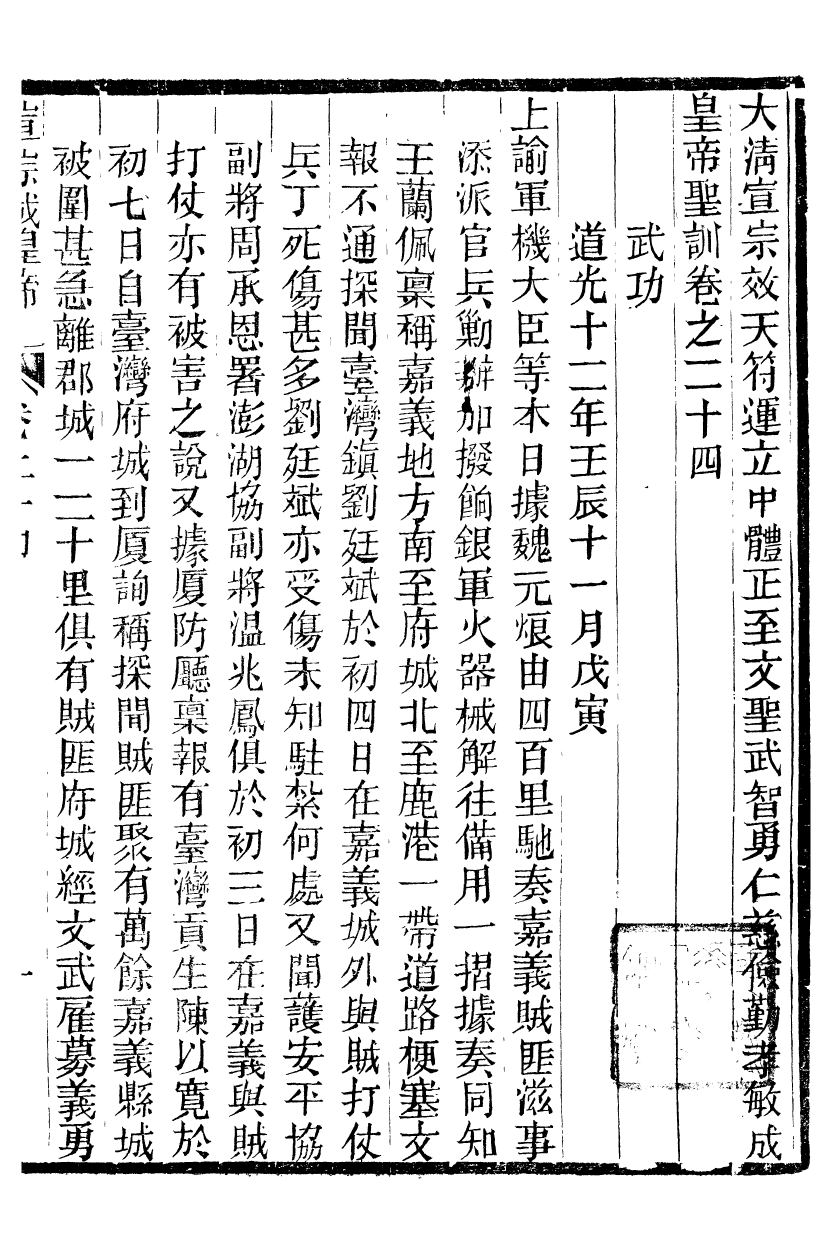 大淸宣宗效天符運立中體正至文聖武智勇仁慈儉勤孝敏成
皇帝聖訓卷之二十四
武功
道光十二年壬辰十一月戊寅
上諭軍機大臣等本日據魏元烺由四百里馳奏嘉義賊匪滋事
添派官兵勦辦加撥餉銀軍火器械解往備用一摺據奏同知
王蘭佩稟稱嘉義地方南至府城北至鹿港一帶道路梗塞文
報不通探聞臺灣鎮劉廷斌於初四日在嘉義城外與賊打仗
兵丁死傷甚多劉廷斌亦受傷未知駐紮何處又聞護安平協
副將周承恩署澎湖協副將溫兆鳳俱於初三日在嘉義與賊
打仗亦有被害之說又據厦防廳稟報有臺灣貢生陳以寬於
初七日自臺灣府城到厦詢稱探聞賊匪聚有萬餘嘉義縣城
被圍甚急離郡城一二十里俱有賊匪府城經文武雇募義勇
宣宗成皇帝 卷二十四 一